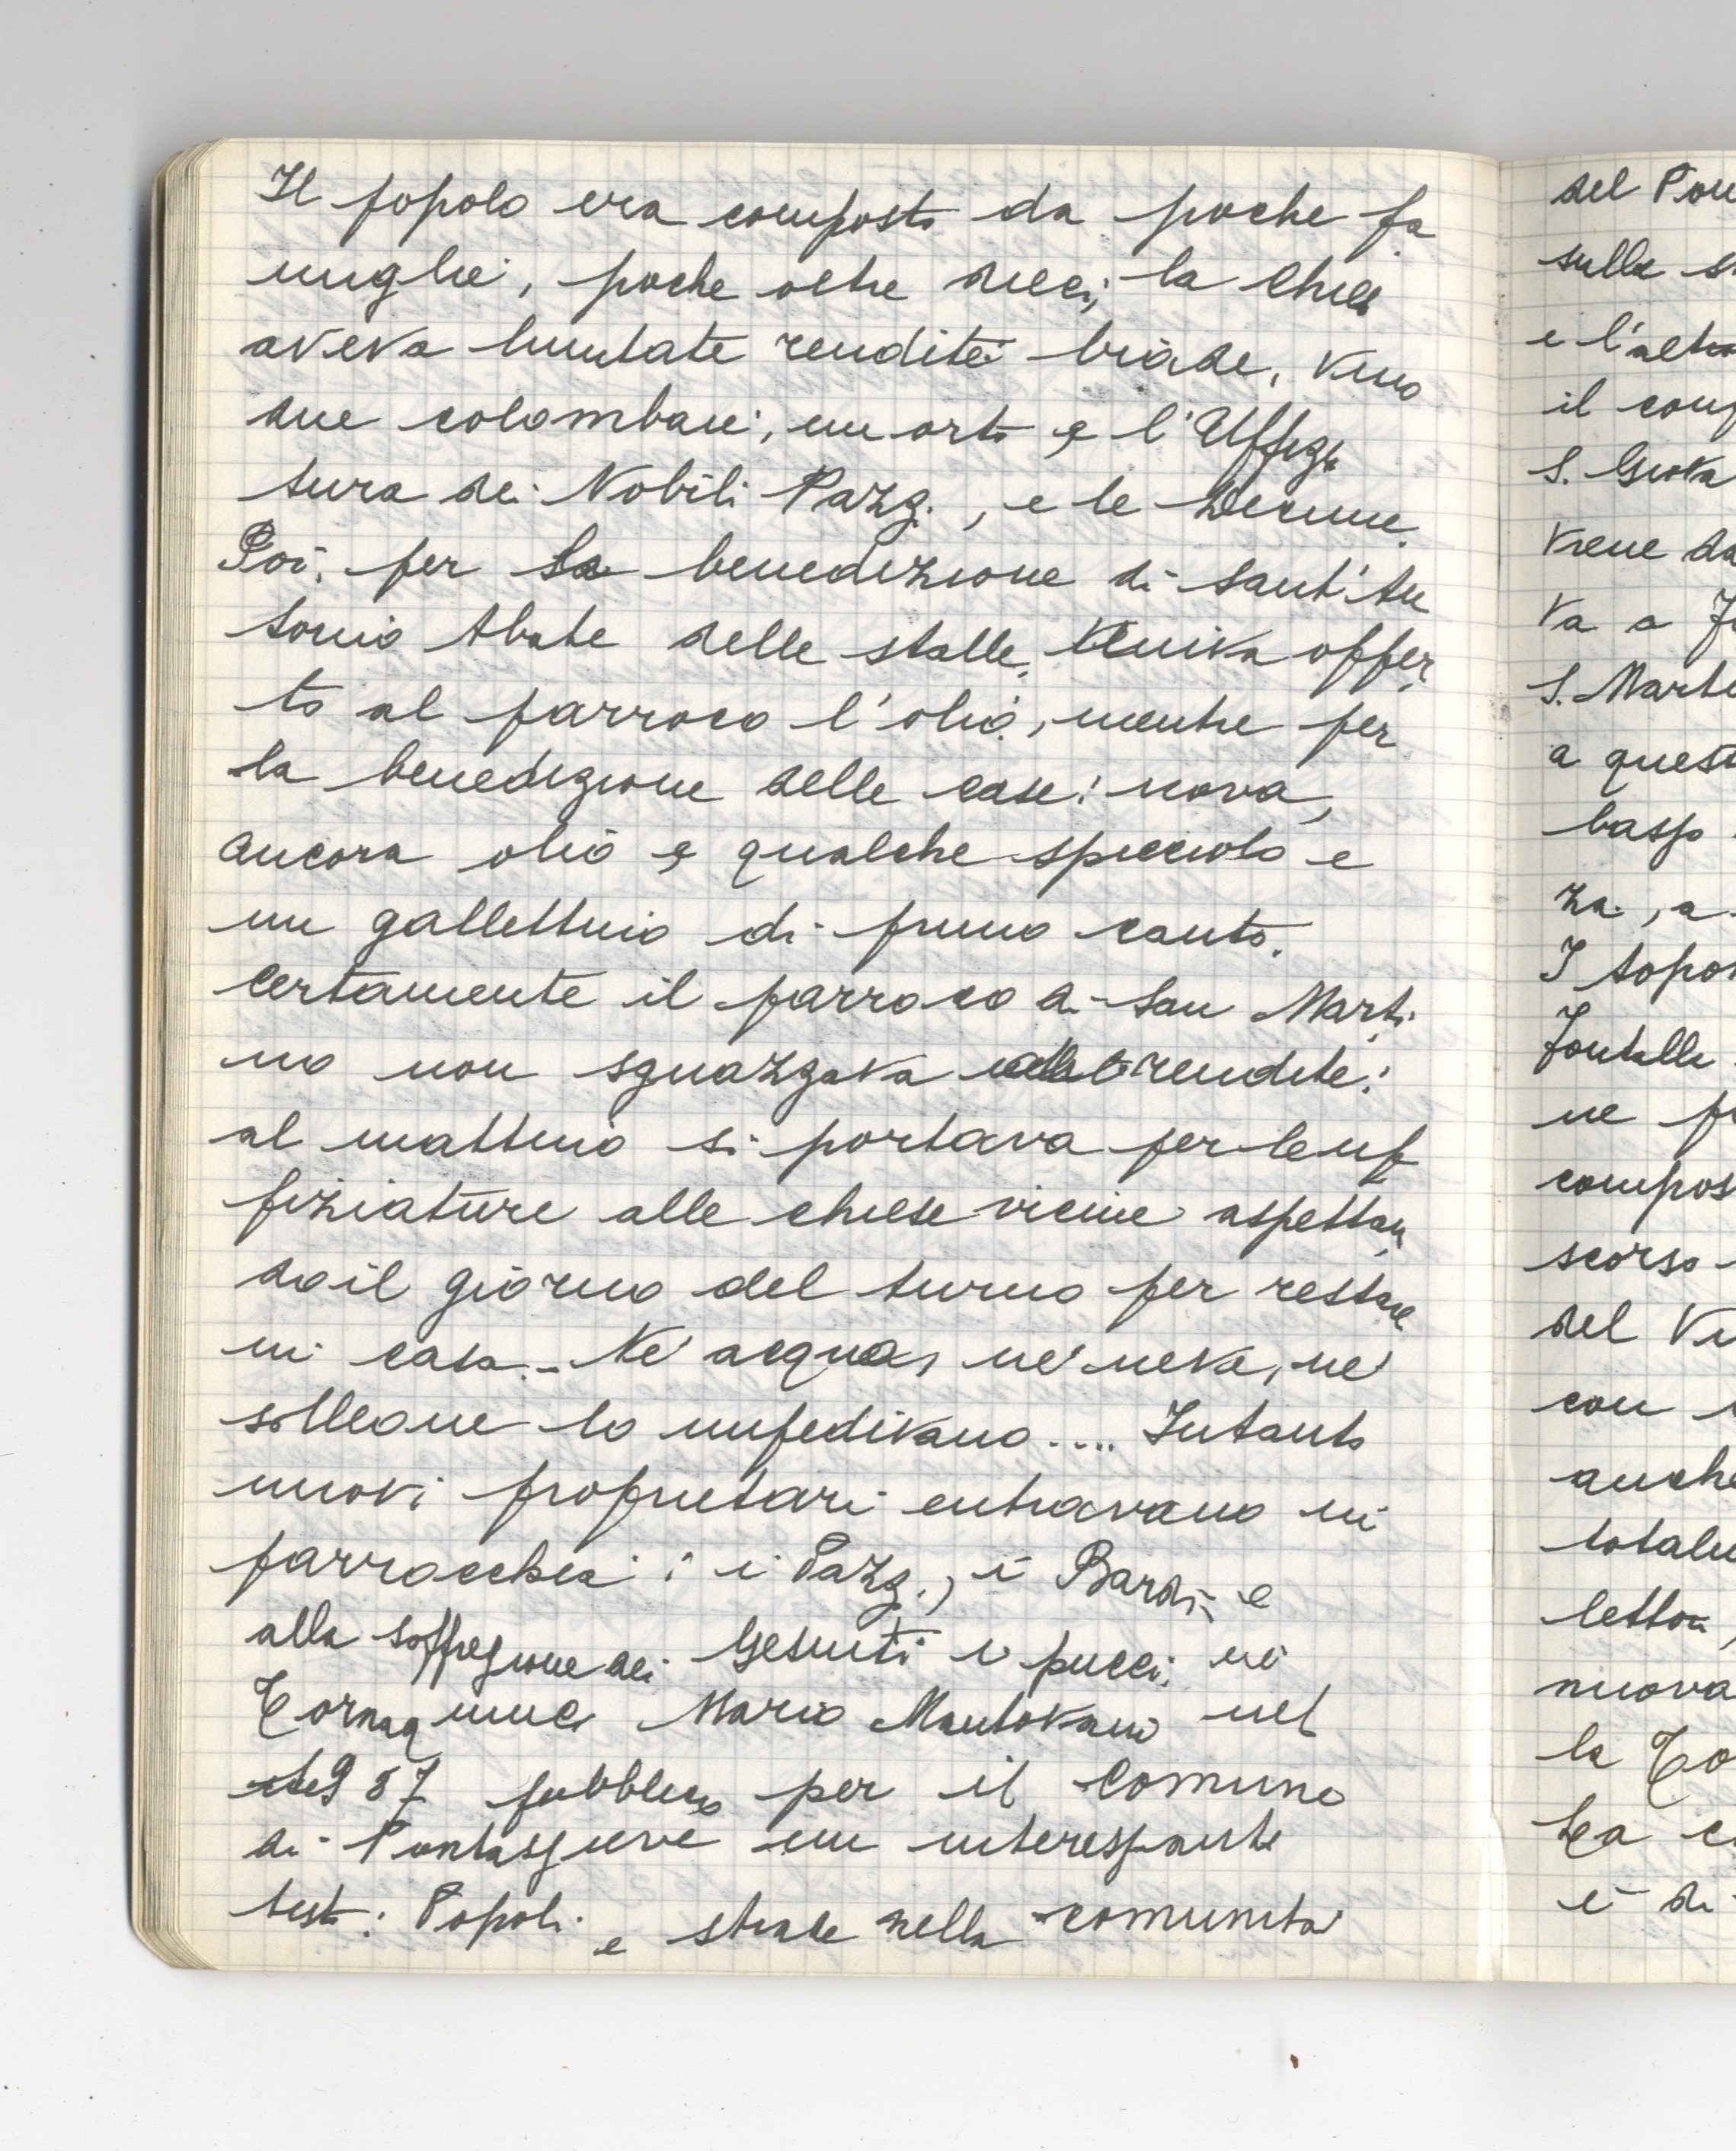 Il popolo era composto da poche fa
miglie, poche oltre dieci; la Chiesa
aveva limitate rendite: biade, vino
due colombaie, un orto e l'Uffizia
tura dei Nobili Pazzi, e le Decime.
Poi, per la benedizione di Sant'An
tonio Abate delle stalle, veniva offer
to al parroco l'olio, mentre per
la benedizione delle case: uova,
ancora olio e qualche spicciolo e
un gallettino di primo canto.
certamente il parroco di San Marti
no non sguazzava rendite:
al mattino si portava per le uf
fiziature alle chiese vicine aspettan
do il giorno del turno per restare
in casa. - Né acqua, né neve, né
solleone lo impedivano.... Intanto
nuovi proprietari entravano in
parrocchia: i Pazzi, i Bardi, e
alla soppressione dei Gesuiti i Pucci, i
Tornaquinci Mario Mantovani nel
1987 pubblicò per il comune
di Pontassieve un interessante
testo: Popoli e strade nella comunità
del Pon
sulle s
e l'altro
il comp
S. Giova
viene da
va a F
S. Marti
a quest
basso
za, a
I topon
Fontalla
ne p
compos
scorso
del Vi
con
anche
total
letto
nuova
la To
ta c
è di